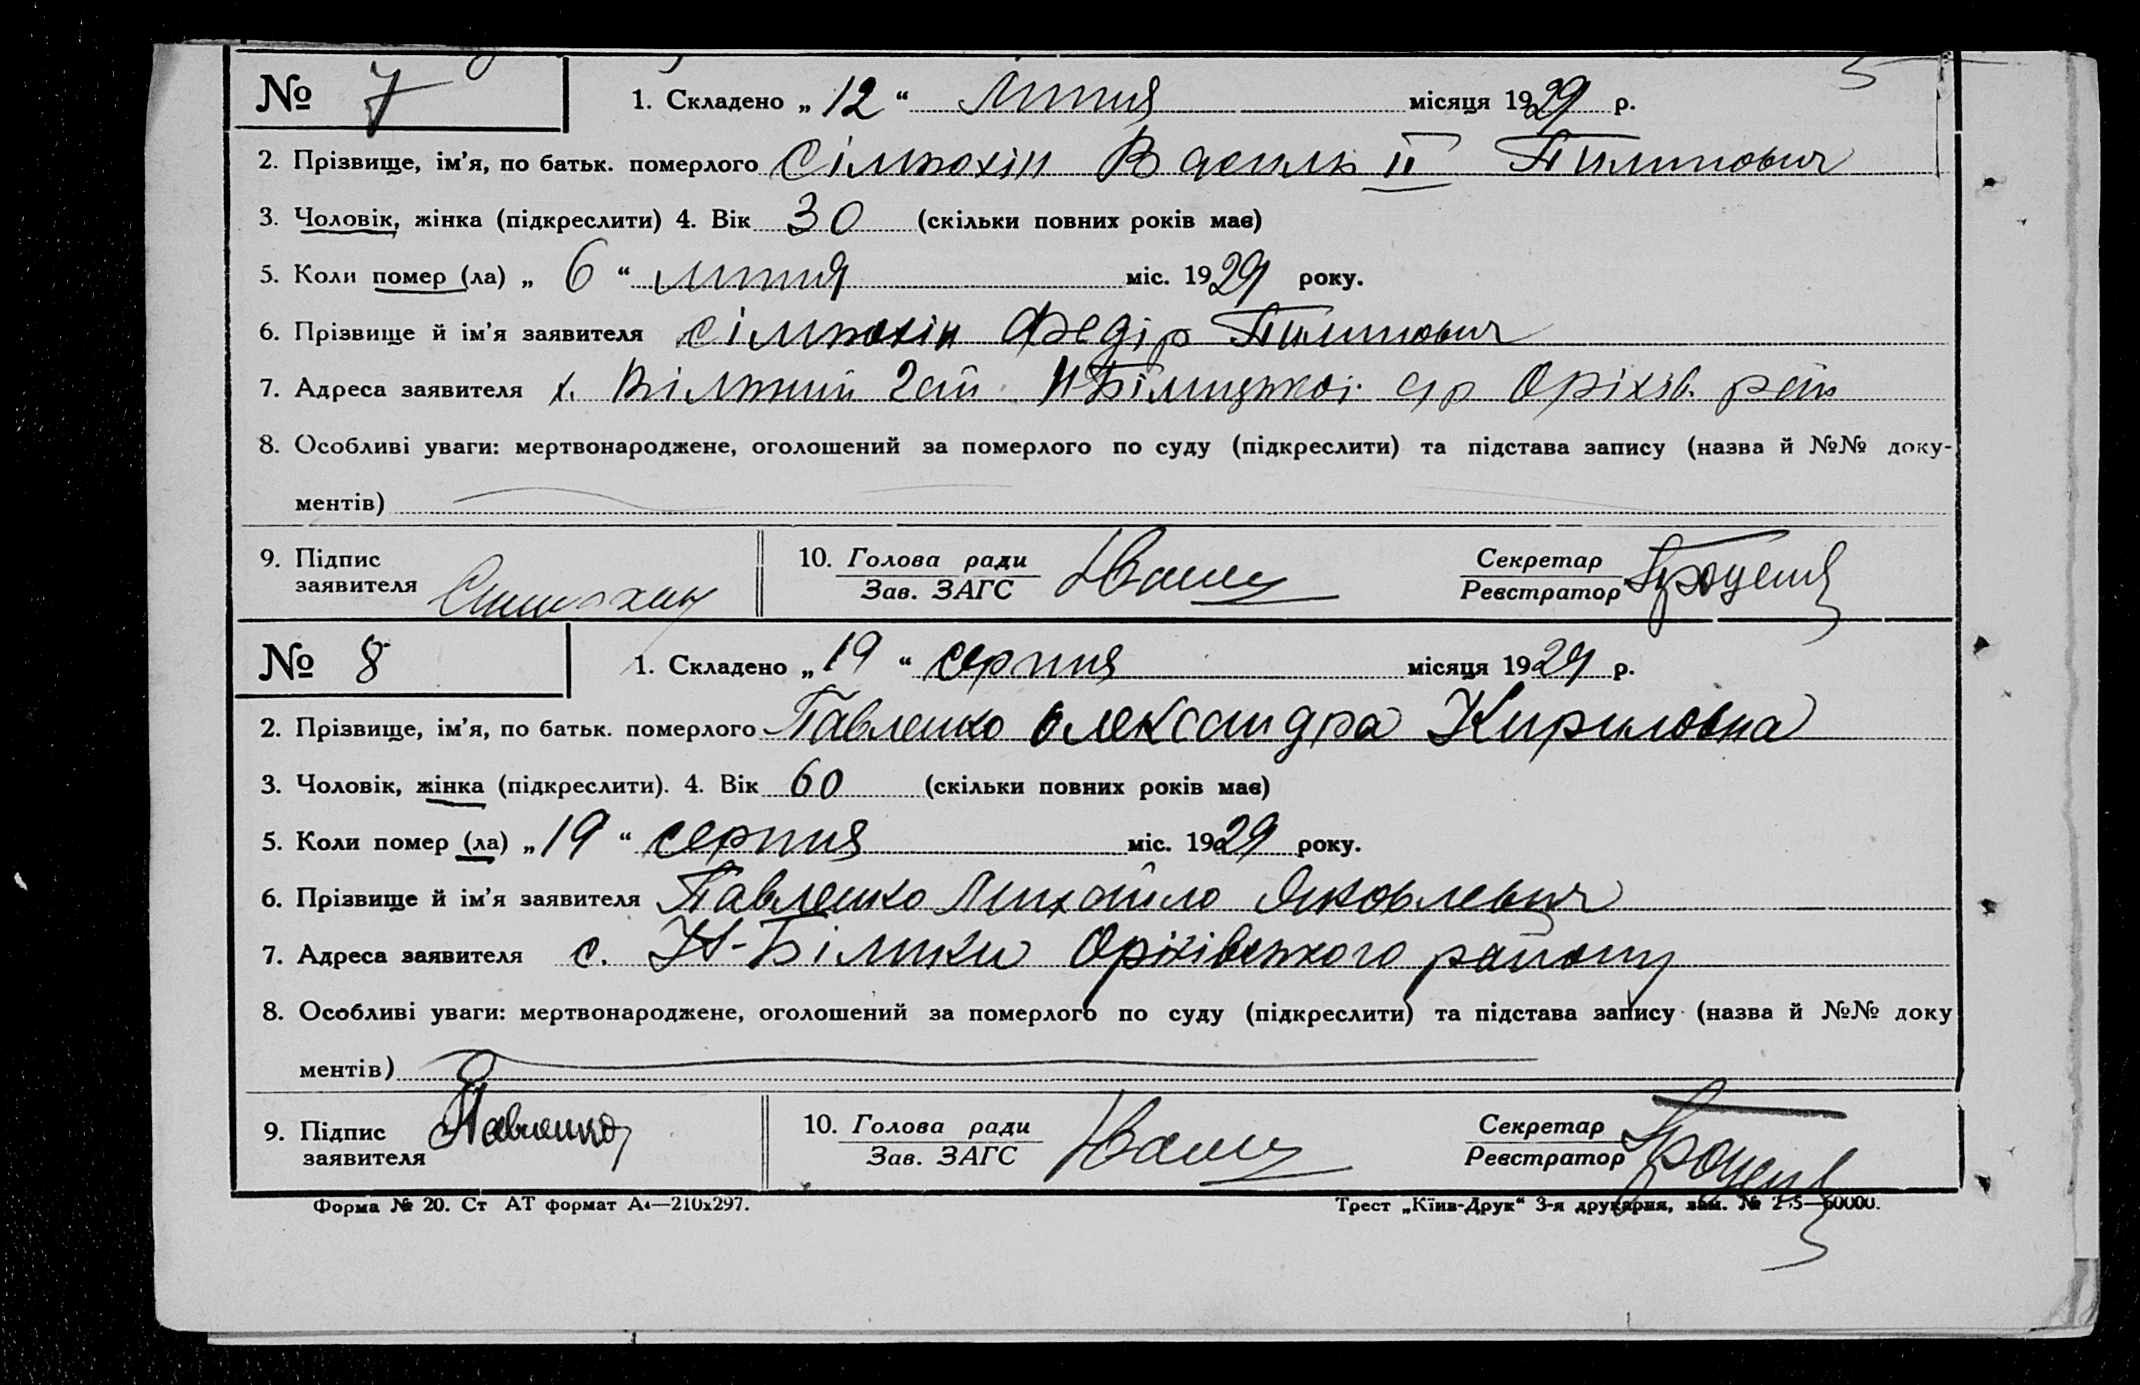 5
№ 7 1. Складено „ 12 “ липня місяця 1929 р.
2. Прізвище, ім’я, по батьк. померлого Сімохін Василь II Пилипович
3. Чоловік, жінка (підкреслити) 4. Вік 30 (скільки повних років має)
5. Коли помер (ла) „ 6 “ липня міс. 1929 року.
6. Прізвище й ім’я заявителя Сімохін Федір Пилипович
7. Адреса заявителя х. Вільний 2ий Н Білицької с/р Оріхів. рай
8. Особливі уваги: мертвонароджене, оголошений за померлого по суду (підкреслити) та підстава запису (назва й №№ доку-
ментів)
9. Підпис заявителя 10. Голова ради Секретар
Зав. ЗАГС Реєстратор
№ 8 1. Складено „ 19 “ серпня місяця 1929 р.
2. Прізвище, ім’я, по батьк. померлого Павленко Олександра Кириловна
3. Чоловік, жінка (підкреслити). 4. Вік 60 (скільки повних років має)
5. Коли помер (ла) „ 19 “ серпня міс. 1929 року.
6. Прізвище й ім’я заявителя Павленко Михайло Яковлевич
7. Адреса заявителя с. Н-Білики Оріхівського району
8. Особливі уваги: мертвонароджене, оголошений за померлого по суду (підкреслити) та підстава запису (назва й №№ доку
ментів)
9. Підпис заявителя Павленко 10. Голова ради Секретар
Зав. ЗАГС Реєстратор
Форма № 20. Ст АТ формат А4—210х297. Трест „Київ-Друк“ 3-я друкарня, зам. №